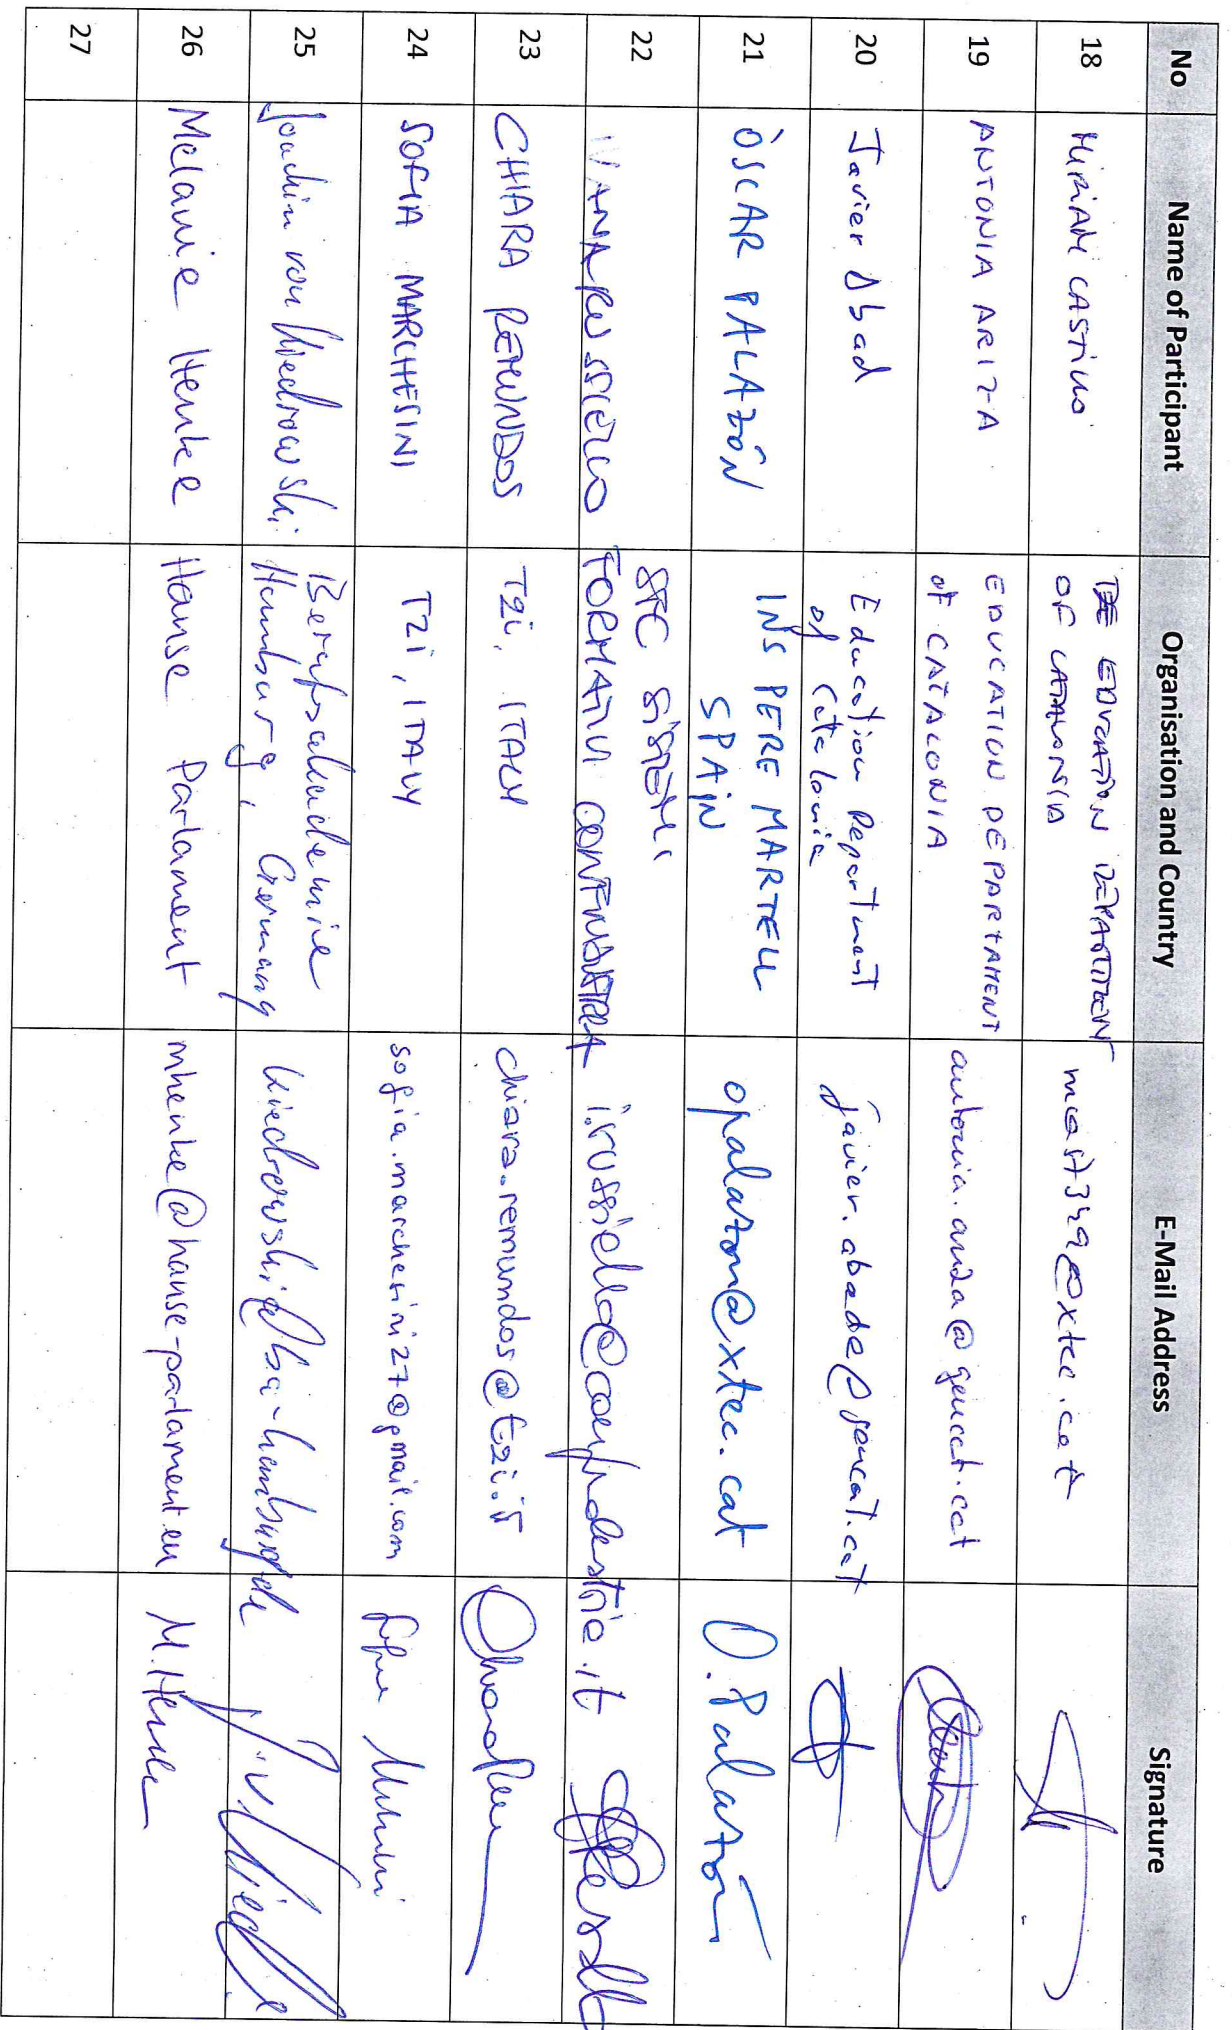 No Name of Participant Organisation and Country E-Mail Address Signature
18 MIRIAM CASTILLO THE EDUCATION DEPARTMENT
OF CATALONIA
19 ANTONIA ARIZA EDUCATION DEPARTAMENT
OF CATALONIA antonia.ariza@gencat.cat
20 Javier Abad Education Department
of Catalonia javier.abade@gencat.cat
21 ÒSCAR PALAZÓN INS PERE MARTELL
SPAIN opalazon@xtec.cat O. Palazón
22 IVANA RUSSIELLO SFC SISTEMI
FORMATIVI CONFINDUSTRIA i.russiello@confindustria.it
23 CHIARA REMUNDOS T2i, ITALY chiara.remundos@t2i.it
24 SOFIA MARCHESINI T2i, ITALY sofia.marchesini27@gmail.com
25 Joachim von Kiedrowski Berufsakademie
Hamburg, Germany kiedrowski@ba-hamburg.de
26 Melanie Henke Hanse Parlament mhenke@hanse-parlament.eu M. Henke
27